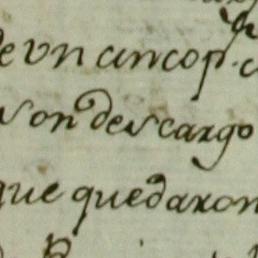 de vn cinco p.
son descargo
que quedaron